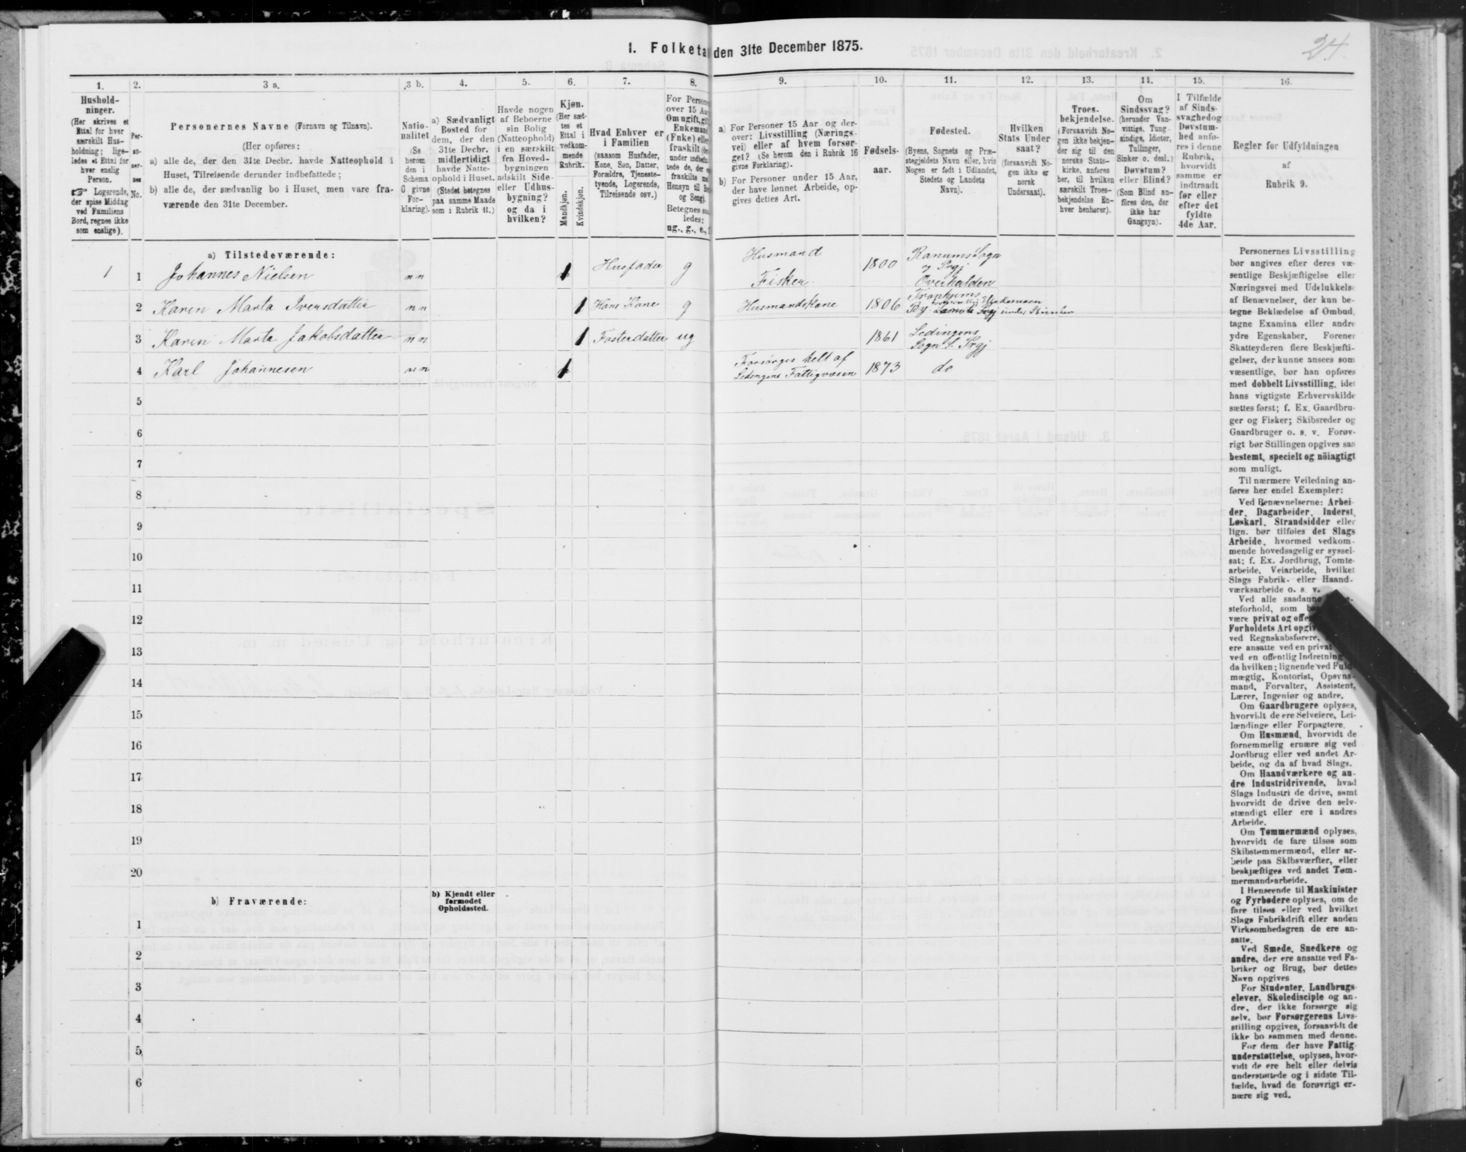 24
1. Folketa den 31te December 1875.
1.
2.
3 a.
3 b.
4.
5.
6.
7.
8.
9.
10.
11.
12.
13.
14.
15.
16.
Hushold-
ninger.
(Her skrives et
Ettal for hver
særskilt Hus-
holdning; lige-
ledes et Ettal for
hver enslig
Person.
☞ Logerende,
der spise Middag
ved Familiens
Bord, regnes ikke
som enslige).
Per-
No.
Personernes Navne (Fornavn og Tilnavn).
(Her opføres:
a) alle de, der den 31te Decbr. havde Natteophold i
Huset, Tilreisende derunder indbefattede;
b) alle de, der sædvanlig bo i Huset, men vare fra-
værende den 31te December.
Natio-
nalitet
(Se
herom
den i
Schema
C givne
For-
klaring).
a) Sædvanligt
Bosted for
dem, der den
31te Decbr.
midlertidigt
havde Natte-
ophold i Huset.
(Stedet betegnes
paa samme Maade
som i Rubrik 11.)
Havde nogen
af Beboerne
sin Bolig
(Natteophold)
i en særskilt
fra Hoved-
bygningen
adskilt Side-
eller Udhus-
bygning?
og da i
hvilken?
Kjøn.
(Her sæt-
tes et
Ettal i
vedkom-
mende
Rubrik.
Mandkjøn.
Kvindekjøn.
Hvad Enhver er
i Familien
(saasom Husfader,
Kone, Søn, Datter,
Forældre, Tjeneste-
tyende, Logerende,
Tilreisende osv.)
For Person
over 15 Aa
Om ugift, g
Enkemand
(Enke) elle
fraskilt
Betegnes
ledes:
ug., g., e.,
a) For Personer 15 Aar og der-
over: Livsstilling (Nærings-
vei) eller af hvem forsør-
get? (Se herom den i Rubrik 16
givne Forklaring).
b) For Personer under 15 Aar,
der have lønnet Arbeide, op-
gives dettes Art.
Fødsels-
aar.
Fødested.
(Byens, Sognets og Præ-
stegjeldets Navn eller, hvis
Nogen er født i Udlandet,
Stedets og Landets
Navn).
Hvilken
Stats Under
saat?
(forsaavidt No-
gen ikke er
norsk
Undersaat).
Troes-
bekjendelse.
(Forsaavidt No-
gen ikke bekjen-
der sig til den
norske Stats-
kirke, anføres
her, til hvilken
særskilt Troes-
bekjendelse En-
hver henhører).
Om
Sindssvag?
(herunder Van-
vittige, Tung-
sindige, Idioter,
Tullinger,
Sinker o. desl.)
Døvstum?
eller Blind?
(Som Blind an-
føres den, der
ikke har
Gangsyn).
I Tilfælde
af Sinds-
svaghedog
Døvstum-
hed anfø-
res i denne
Rubrik,
hvorvidt
samme er
indtraadt
før eller
efter det
fyldte
4de Aar.
Regler for Udfyldningen
af
Rubrik 9.
a) Tilstedeværende:
1 1 Johannes Nielsen nn 1 Husfader g Husmand Fisker 1800 Ranums Sogn
og Prgj
Overhalden
2 Karen Marta Iversdatter nn 1 Hans Kone g Husmandskone 1806
3 Karen Marta Jakobsdatter nn 1 Fosterdatter ug 1861 Ledingens
Sogn & Prgj
4 Karl Johannesen nn 1 Forsørges helt af
Ledingens Fattigvæsen 1873 do
5
6
7
8
9
10
11
12
13
14
15
16
17
18
19
20
b) Fraværende:
b) Kjendt eller
formodet
Opholdssted.
1
2
3
4
5
6
Personernes Livsstilling
bør angives efter deres væ-
sentlige Beskjæftigelse eller
Næringsvei med Udelukkelse
af Benævnelser, der kun be-
tegne Beklædelse af Ombud,
tagne Examina eller andre
ydre Egenskaber. Forener
Skatteyderen flere Beskjæfti-
gelser, der kunne ansees som
væsentlige, bør han opføres
med dobbelt Livsstilling, idet
hans vigtigste Erhvervskilde
sættes først; f. Ex. Gaardbru-
ger og Fisker; Skibsreder og
Gaardbruger o. s. v. Forøv-
rigt bør Stillingen opgives saa
bestemt, specielt og nöiagtigt
som muligt.
Til nærmere Veiledning an-
føres her endel Exempler:
Ved Benævnelserne: Arbei-
der, Dagarbeider, Inderst,
Løskarl, Strandsidder eller
lign. bør tilføies det Slags
Arbeide, hvormed vedkom-
mende hovedsagelig er syssel-
sat; f. Ex. Jordbrug, Tomte-
arbeide, Veiarbeide, hvilket
Slags Fabrik- eller Haand-
værksarbeide o. s. v.
Ved alle saadanne
steforhold, som
være privat og offe
Forholdets Art opgi
ved Regnskabsførere,
ere ansatte ved en privat
ved en offentlig Indretning
da hvilken; lignende ved Fuld-
mægtig, Kontorist, Opsyns-
mand, Forvalter, Assistent,
Lærer, Ingeniør og andre.
Om Gaardbrugere oplyses,
hvorvidt de ere Selveiere, Lei-
lændinge eller Forpagtere.
Om Husmænd, hvorvidt de
fornemmelig ernære sig ved
Jordbrug eller ved andet Ar-
beide, og da af hvad Slags.
Om Haandværkere og an-
dre Industridrivende, hvad
Slags Industri de drive, samt
hvorvidt de drive den selv-
stændigt eller ere i andres
Arbeide.
Om Tømmermænd oplyses,
hvorvidt de fare tilsøs som
Skibstømmermænd, eller ar-
beide paa Skibsværfter, eller
beskjæftiges ved andet Tøm-
mermandsarbeide.
I Henseende til Maskinister
og Fyrbødere oplyses, om de
fare tilsøs eller ved hvilket
Slags Fabrikdrift eller anden
Virksomhedsgren de ere an-
satte.
Ved Smede, Snedkere og
andre, der ere ansatte ved Fa-
briker og Brug, bør dettes
Navn opgives
For Studenter, Landbrugs-
elever, Skoledisciple og an-
dre, der ikke forsørge sig
selv, bør Forsørgerens Livs-
stilling opgives, forsaavidt de
ikke bo sammen med denne.
For dem der have Fattig-
understøttelse, oplyses, hvor-
vidt de ere helt eller delvis
understøttede og i sidste Til-
fælde, hvad de forøvrigt er-
nære sig ved.